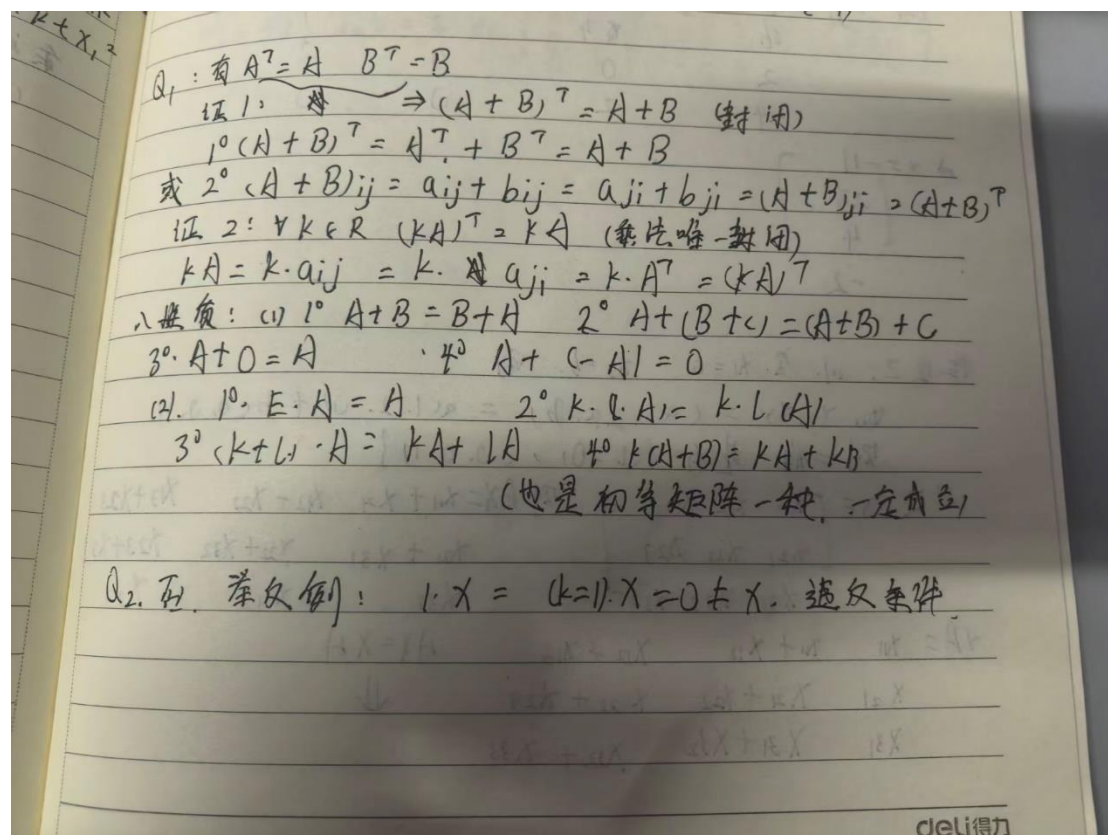 k + x₁,2
Q₁: 有 Aᵀ = A Bᵀ = B
证1: ⇒ (A + B)ᵀ = A + B (封闭)
1° (A + B)ᵀ = Aᵀ + Bᵀ = A + B
或 2° (A + B)ij = aij + bij = aji + bji = (A+B)ji = (A+B)ᵀ
证 2: ∀ k ∈ R (kA)ᵀ = kA (乘法唯一封闭)
kA = k·aij = k· aji = k·Aᵀ = (kA)ᵀ
八性质: (1) 1° A+B = B+A 2° A+(B+C) = (A+B)+C
3°. A+0 = A 4° A + (-A) = 0
(2). 1°. E·A = A 2° k·(l·A) = k·l(A)
3° (k+l)·A = kA + lA 4° k(A+B) = kA + kB
(也是初等矩阵一种, 一定成立)
Q₂. 举反例: 1·X = (k=1)·X = 0 ≠ X. 违反条件
deli得力